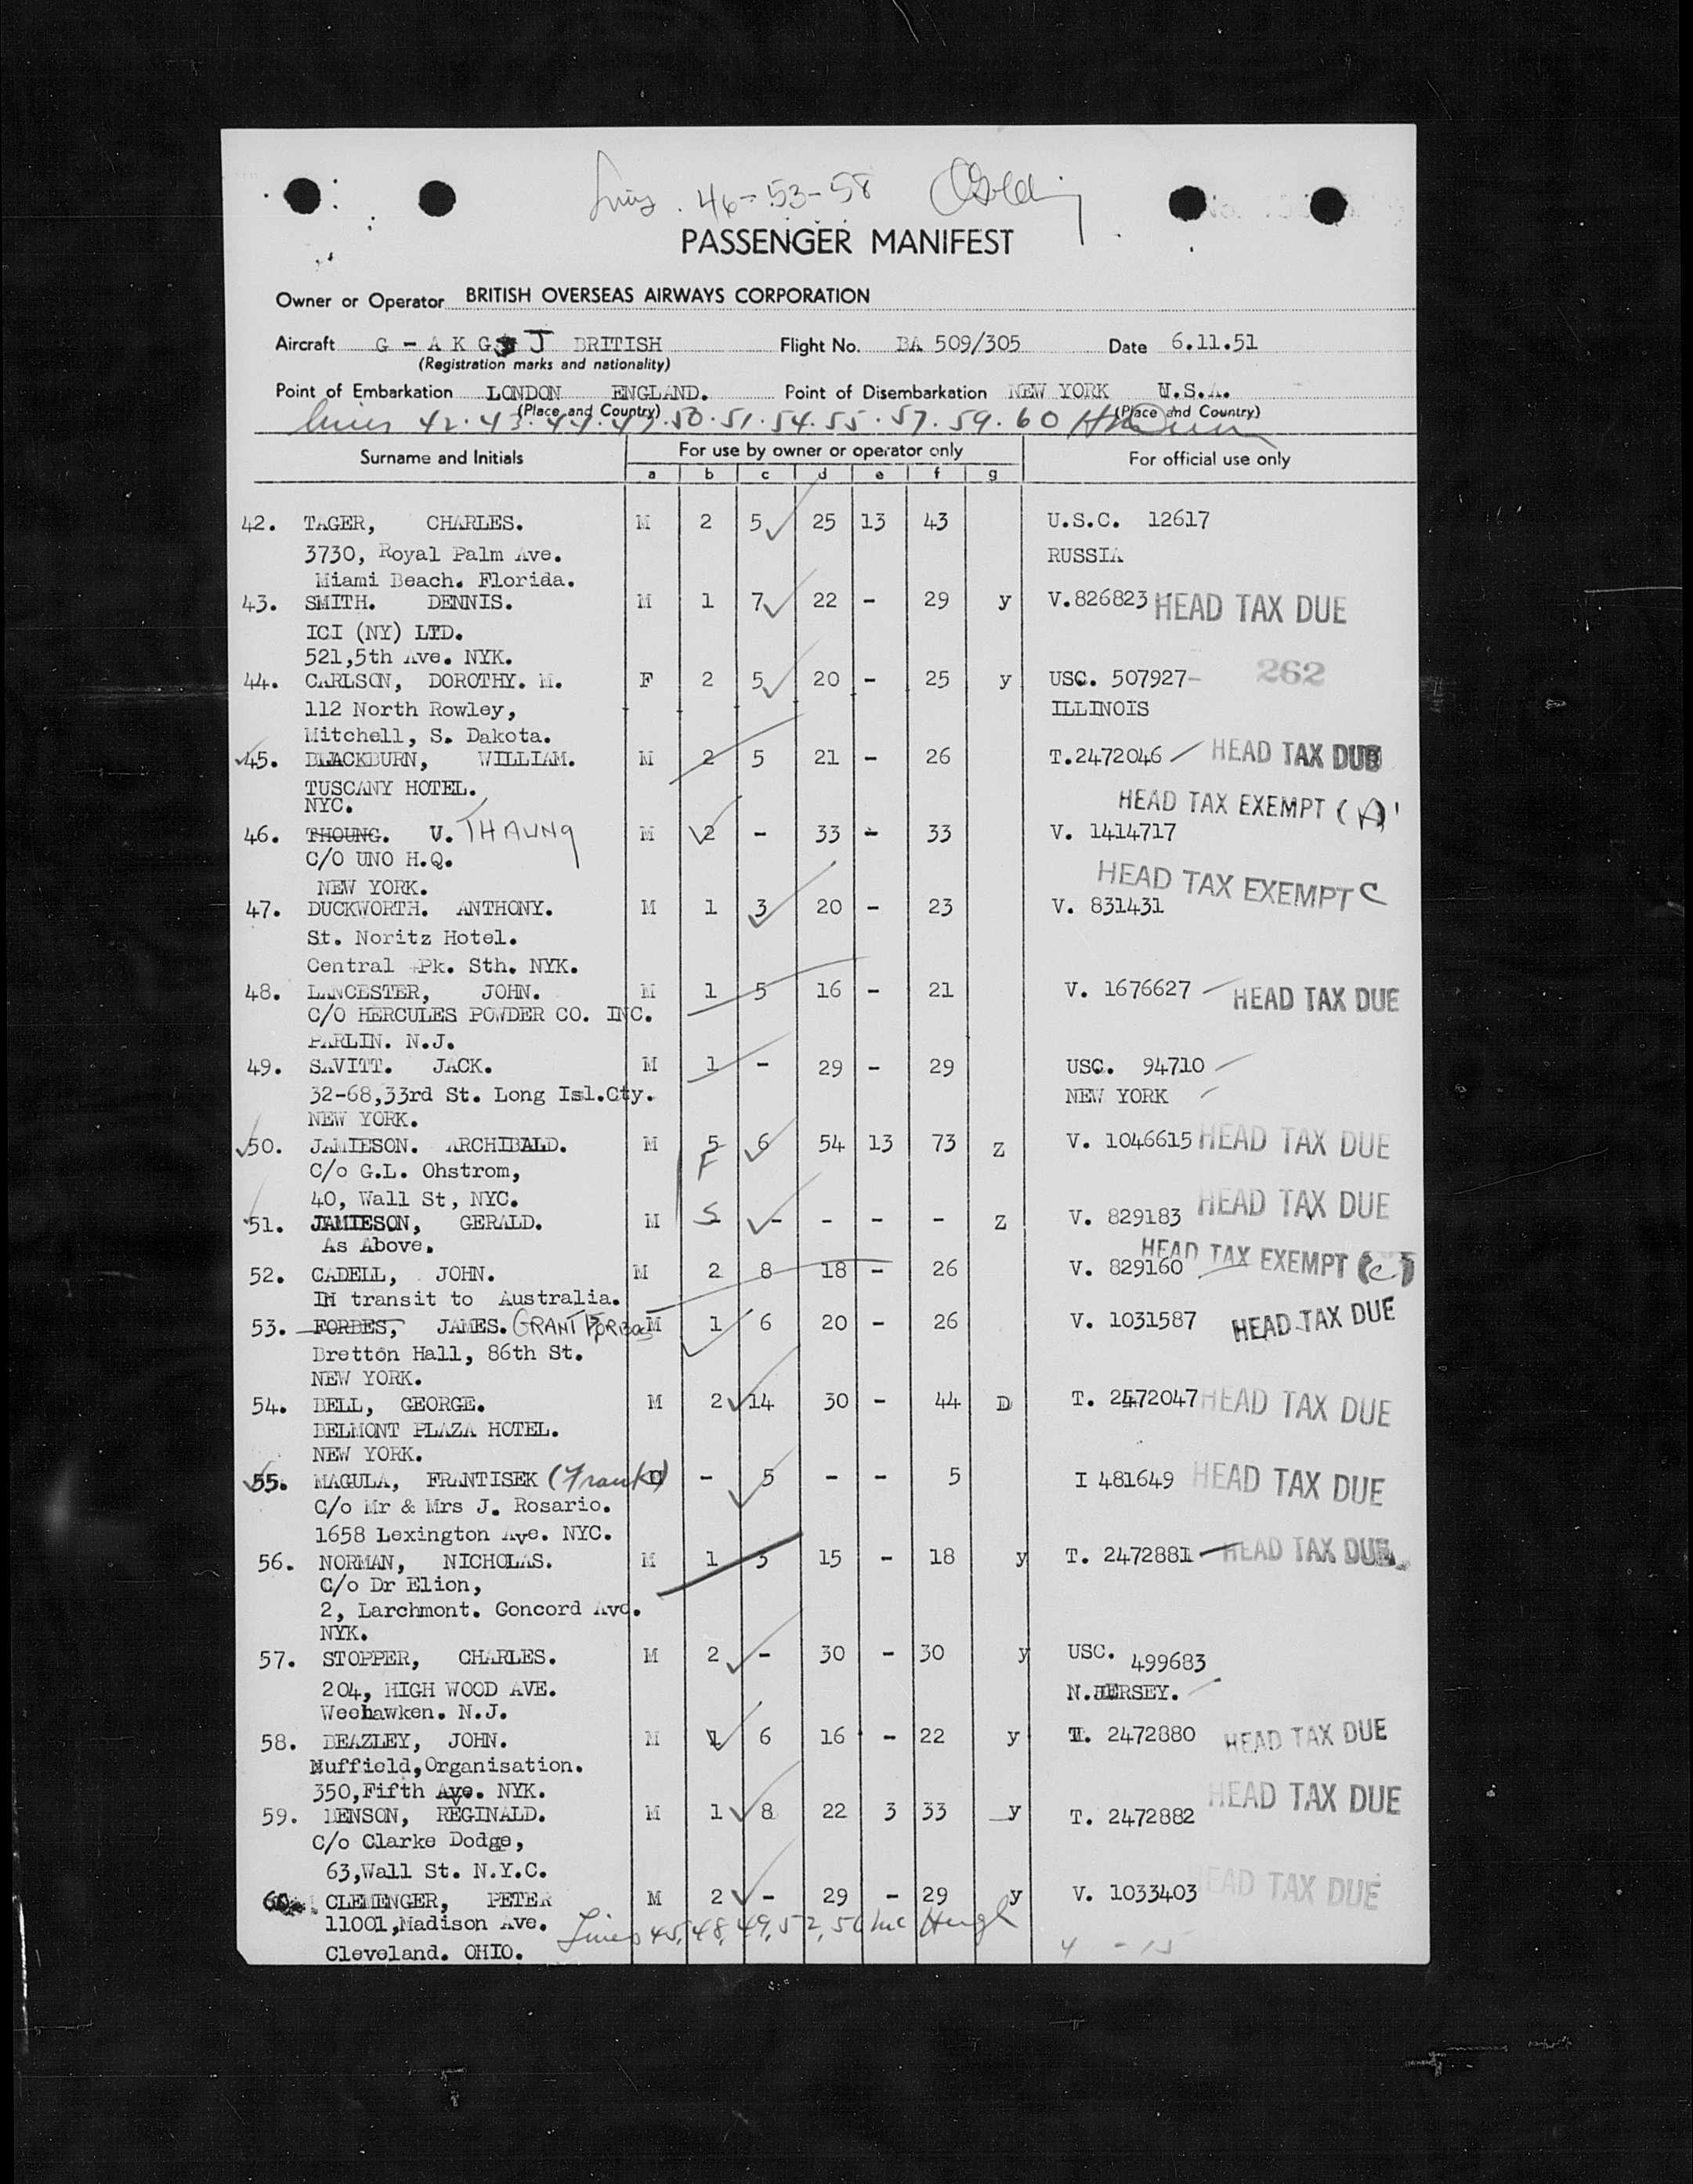 Lines. 46-53-58
PASSENGER MANIFEST
Owner or Operator BRITISH OVERSEAS AIRWAYS CORPORATION
Aircraft G - A K G J BRITISH Flight No. BA 509/305 Date 6.11.51
(Registration marks and nationality)
Point of Embarkation LONDON ENGLAND. Point of Disembarkation NEW YORK U.S.A.
(Place and Country) (Place and Country)
Lines 42.43.44.47.50.51.54.55.57.59.60
Surname and Initials For use by owner or operator only For official use only
a b c d e f g
42. TAGER, CHARLES. M 2 5 25 13 43 U.S.C. 12617
3730, Royal Palm Ave. RUSSIA
Miami Beach. Florida.
43. SMITH. DENNIS. M 1 7 22 - 29 y V.826823 HEAD TAX DUE
ICI (NY) LTD.
521,5th Ave. NYK.
44. CARLSON, DOROTHY. M. F 2 5 20 - 25 y USC. 507927- 262
112 North Rowley, ILLINOIS
Mitchell, S. Dakota.
45. BLACKBURN, WILLIAM. M 2 5 21 - 26 T.2472046 HEAD TAX DUE
TUSCANY HOTEL.
NYC. HEAD TAX EXEMPT (A)
46. THOUNG. U. THAUNG M 2 - 33 - 33 V. 1414717
C/O UNO H.Q.
NEW YORK. HEAD TAX EXEMPT C
47. DUCKWORTH. ANTHONY. M 1 3 20 - 23 V. 831431
St. Noritz Hotel.
Central Pk. Sth. NYK.
48. LANCESTER, JOHN. M 1 5 16 - 21 V. 1676627 HEAD TAX DUE
C/O HERCULES POWDER CO. INC.
PARLIN. N.J.
49. SAVITT. JACK. M 1 - 29 - 29 USC. 94710
32-68,33rd St. Long Isl.Cty. NEW YORK
NEW YORK.
50. JAMIESON. ARCHIBALD. M 5 6 54 13 73 Z V. 1046615 HEAD TAX DUE
C/o G.L. Ohstrom, F
40, Wall St, NYC.
51. JAMIESON, GERALD. M S - - - - Z V. 829183 HEAD TAX DUE
As Above.
52. CADELL, JOHN. M 2 8 18 - 26 V. 829160 HEAD TAX EXEMPT (C)
IN transit to Australia.
53. FORBES, JAMES. GRANT FORBES M 1 6 20 - 26 V. 1031587 HEAD TAX DUE
Bretton Hall, 86th St.
NEW YORK.
54. BELL, GEORGE. M 2 14 30 - 44 D T. 2472047 HEAD TAX DUE
BELMONT PLAZA HOTEL.
NEW YORK.
55. MAGULA, FRANTISEK (Frank) - 5 - - 5 I 481649 HEAD TAX DUE
C/o Mr & Mrs J. Rosario.
1658 Lexington Ave. NYC.
56. NORMAN, NICHOLAS. M 1 3 15 - 18 y T. 2472881 HEAD TAX DUE
C/o Dr Elion,
2, Larchmont. Goncord Ave.
NYK.
57. STOPPER, CHARLES. M 2 - 30 - 30 y USC. 499683
204, HIGH WOOD AVE. N.JERSEY.
Weehawken. N.J.
58. BEAZLEY, JOHN. M 1 6 16 - 22 y T. 2472880 HEAD TAX DUE
Nuffield,Organisation.
350,Fifth Ave. NYK.
59. BENSON, REGINALD. M 1 8 22 3 33 y T. 2472882 HEAD TAX DUE
C/o Clarke Dodge,
63,Wall St. N.Y.C.
60. CLEMENGER, PETER M 2 - 29 - 29 y V. 1033403 HEAD TAX DUE
11001,Madison Ave. Lines 45,48,49,52,56 inc
Cleveland. OHIO. 4 - 15